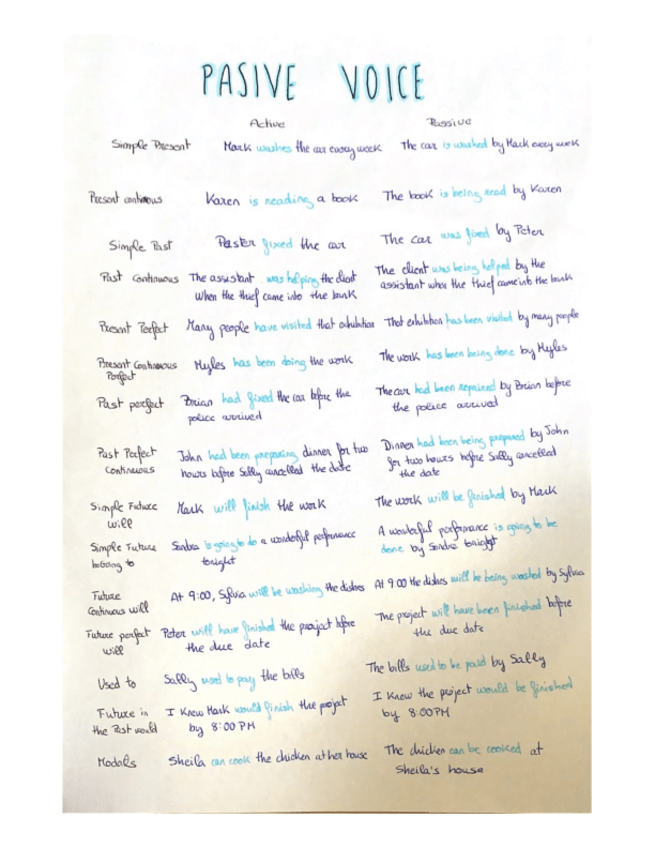 PASIVE VOICE
Active Passive
Simple Present Mark washes the car every week The car is washed by Mark every week
Present continuous Karen is reading a book The book is being read by Karen
Simple Past Pester fixed the car The car was fixed by Peter
Past Continuous The assistant was helping the client The client was being helped by the
when the thief came into the bank assistant when the thief came into the bank
Present Perfect Many people have visited that exhibition That exhibition has been visited by many people
Present Continuous Myles has been doing the work The work has been being done by Myles
Perfect
Past perfect Brian had fixed the car before the The car had been repaired by Brian before
police arrived the police arrived
Past Perfect John had been preparing dinner for two Dinner had been being prepared by John
Continuous hours before Sally cancelled the date for two hours before Sally cancelled
the date
Simple Future Mark will finish the work The work will be finished by Mark
will
Simple Future Sandra is going to do a wonderful performance A wonderful performance is going to be
be Going to tonight done by Sandra tonight
Future At 9:00, Sylvia will be washing the dishes At 9:00 the dishes will be being washed by Sylvia
Continuous will
Future perfect Peter will have finished the project before The project will have been finished before
will the due date the due date
Used to Sally used to pay the bills The bills used to be paid by Sally
Future in I Knew Mark would finish the project I Knew the project would be finished
the Past would by 8:00 PM by 8:00PM
Modals Sheila can cook the chicken at her house The chicken can be cooked at
Sheila's house